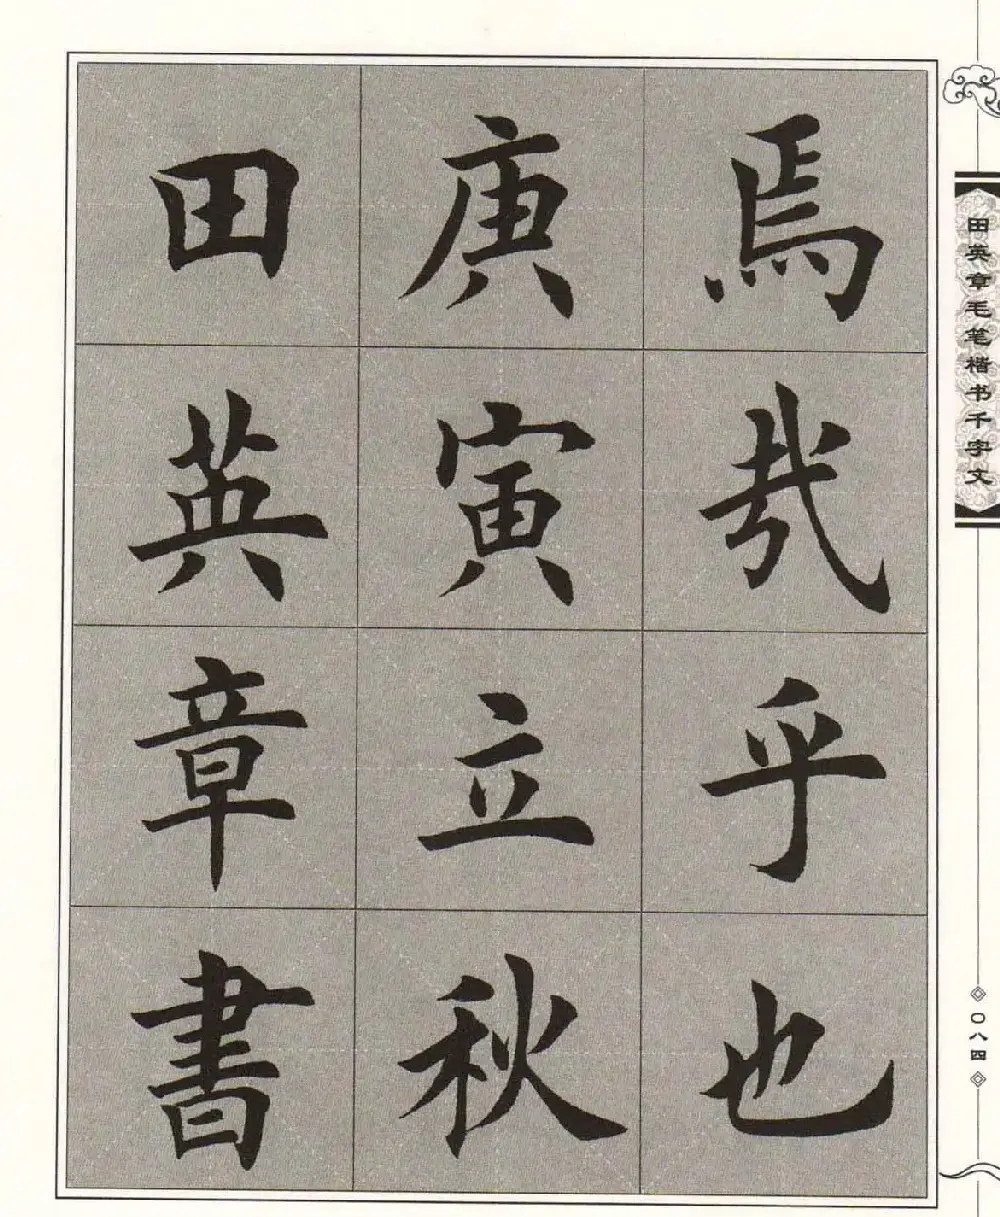 焉哉乎也
庚寅立秋
田英章書
田英章毛笔楷书千字文
〇八四